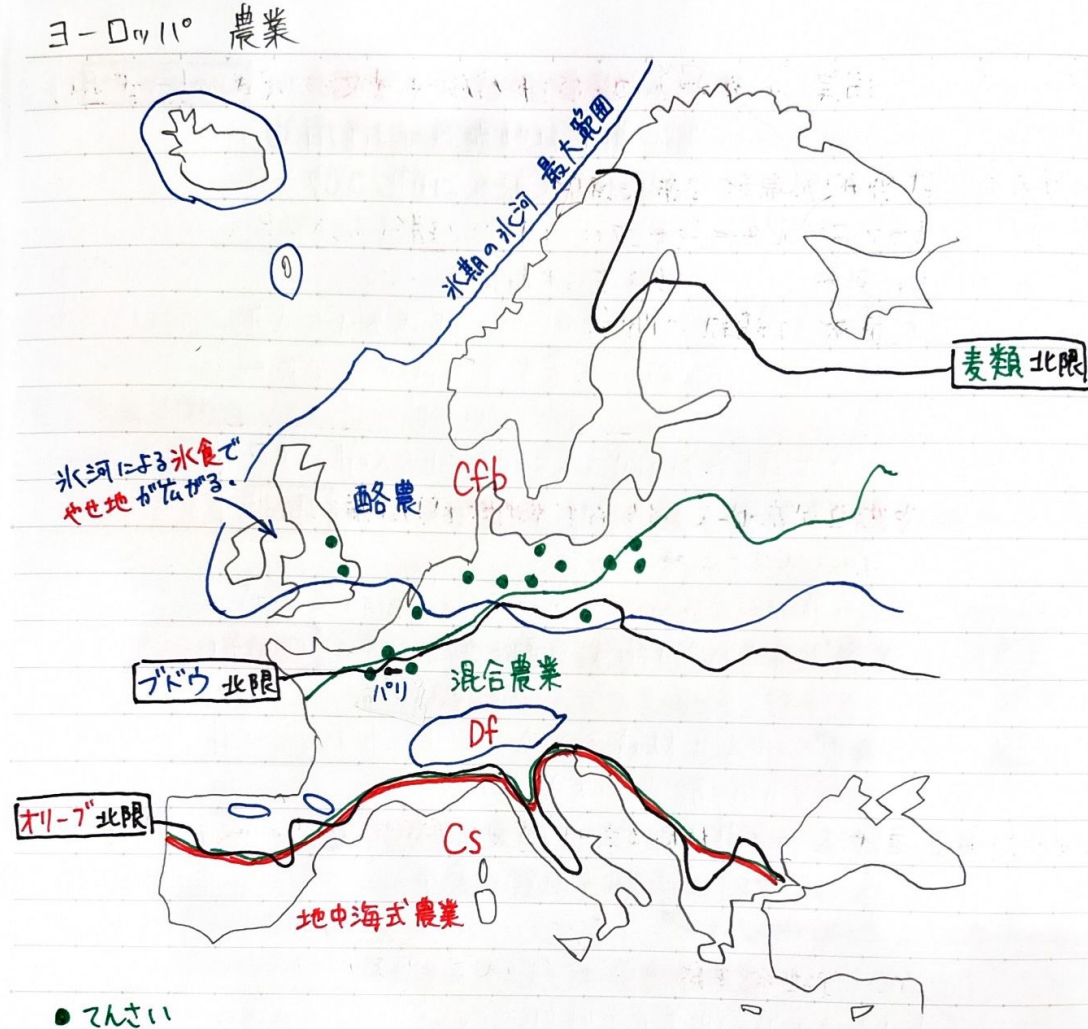 ヨーロッパ 農業
氷期の氷河 最大範囲
麦類 北限
氷河による氷食で
やせ地が広がる。
酪農
Cfb
ブドウ 北限
パリ
混合農業
Df
オリーブ 北限
Cs
地中海式農業
てんさい